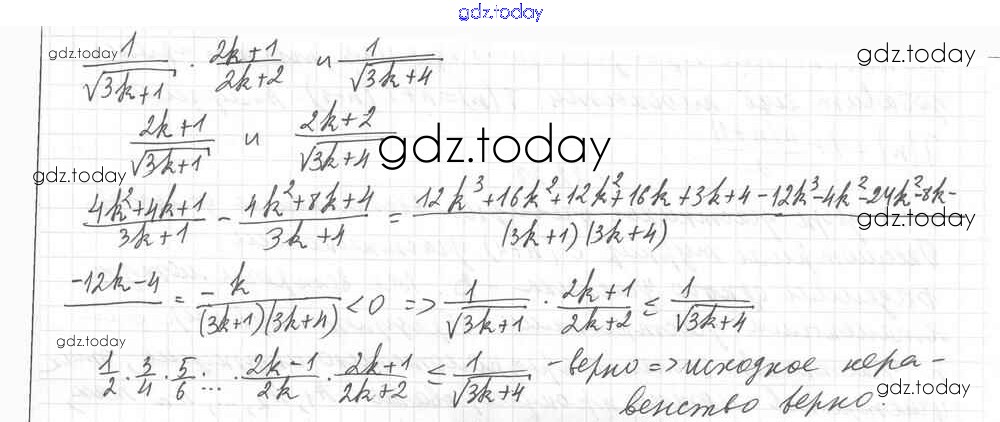 gdz.today
gdz.today 1/√(3k+1) · (2k+1)/(2k+2) и 1/√(3k+4) gdz.today
(2k+1)/√(3k+1) и (2k+2)/√(3k+4) gdz.today
gdz.today (4k²+4k+1)/(3k+1) - (4k²+8k+4)/(3k+4) = (12k³+16k²+12k²+16k+3k+4-12k³-4k²-24k²-8k-)/((3k+1)(3k+4)) gdz.today
(-12k-4)/ = -k/((3k+1)(3k+4)) < 0 => 1/√(3k+1) · (2k+1)/(2k+2) ≤ 1/√(3k+4)
gdz.today
1/2 · 3/4 · 5/6 · ... · (2k-1)/2k · (2k+1)/(2k+2) ≤ 1/√(3k+4) - верно => исходное нера-
gdz.today
венство верно.